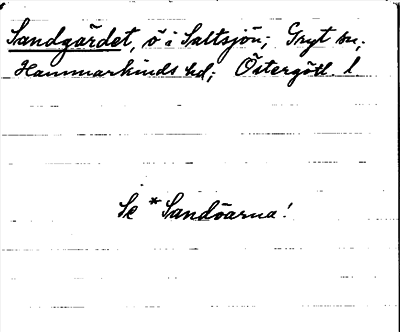 Sandgärdet, ö i Saltsjön; Gryt sn;
Hammarkinds hd; Östergötl. l
Se *Sandöarna!